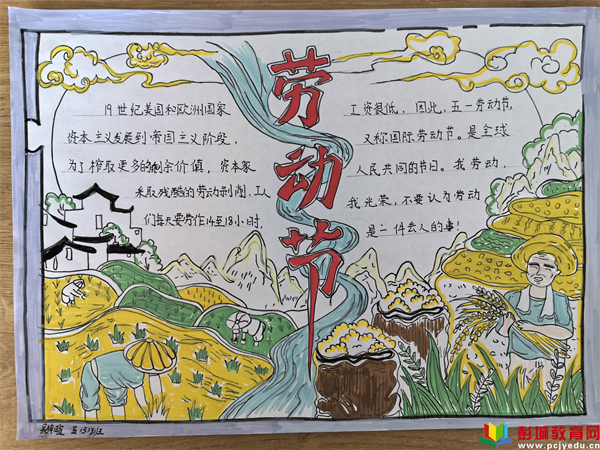 劳动节
19世纪美国和欧洲国家
资本主义发展到帝国主义阶段,
为了榨取更多的剩余价值,资本家
采取残酷的劳动剥削,工人
们每天要劳作14至18小时,
工资很低,因此,五一劳动节,
又称国际劳动节。是全球
人民共同的节日。我劳动,
我光荣,不要认为劳动
是一件丢人的事!
五(3)班
彭城教育网
www.pcjyedu.cn